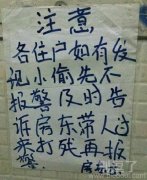 注意
各住户如有发
现小偷先不
报警及时告
诉房东带人
来打残再报
警。
房东